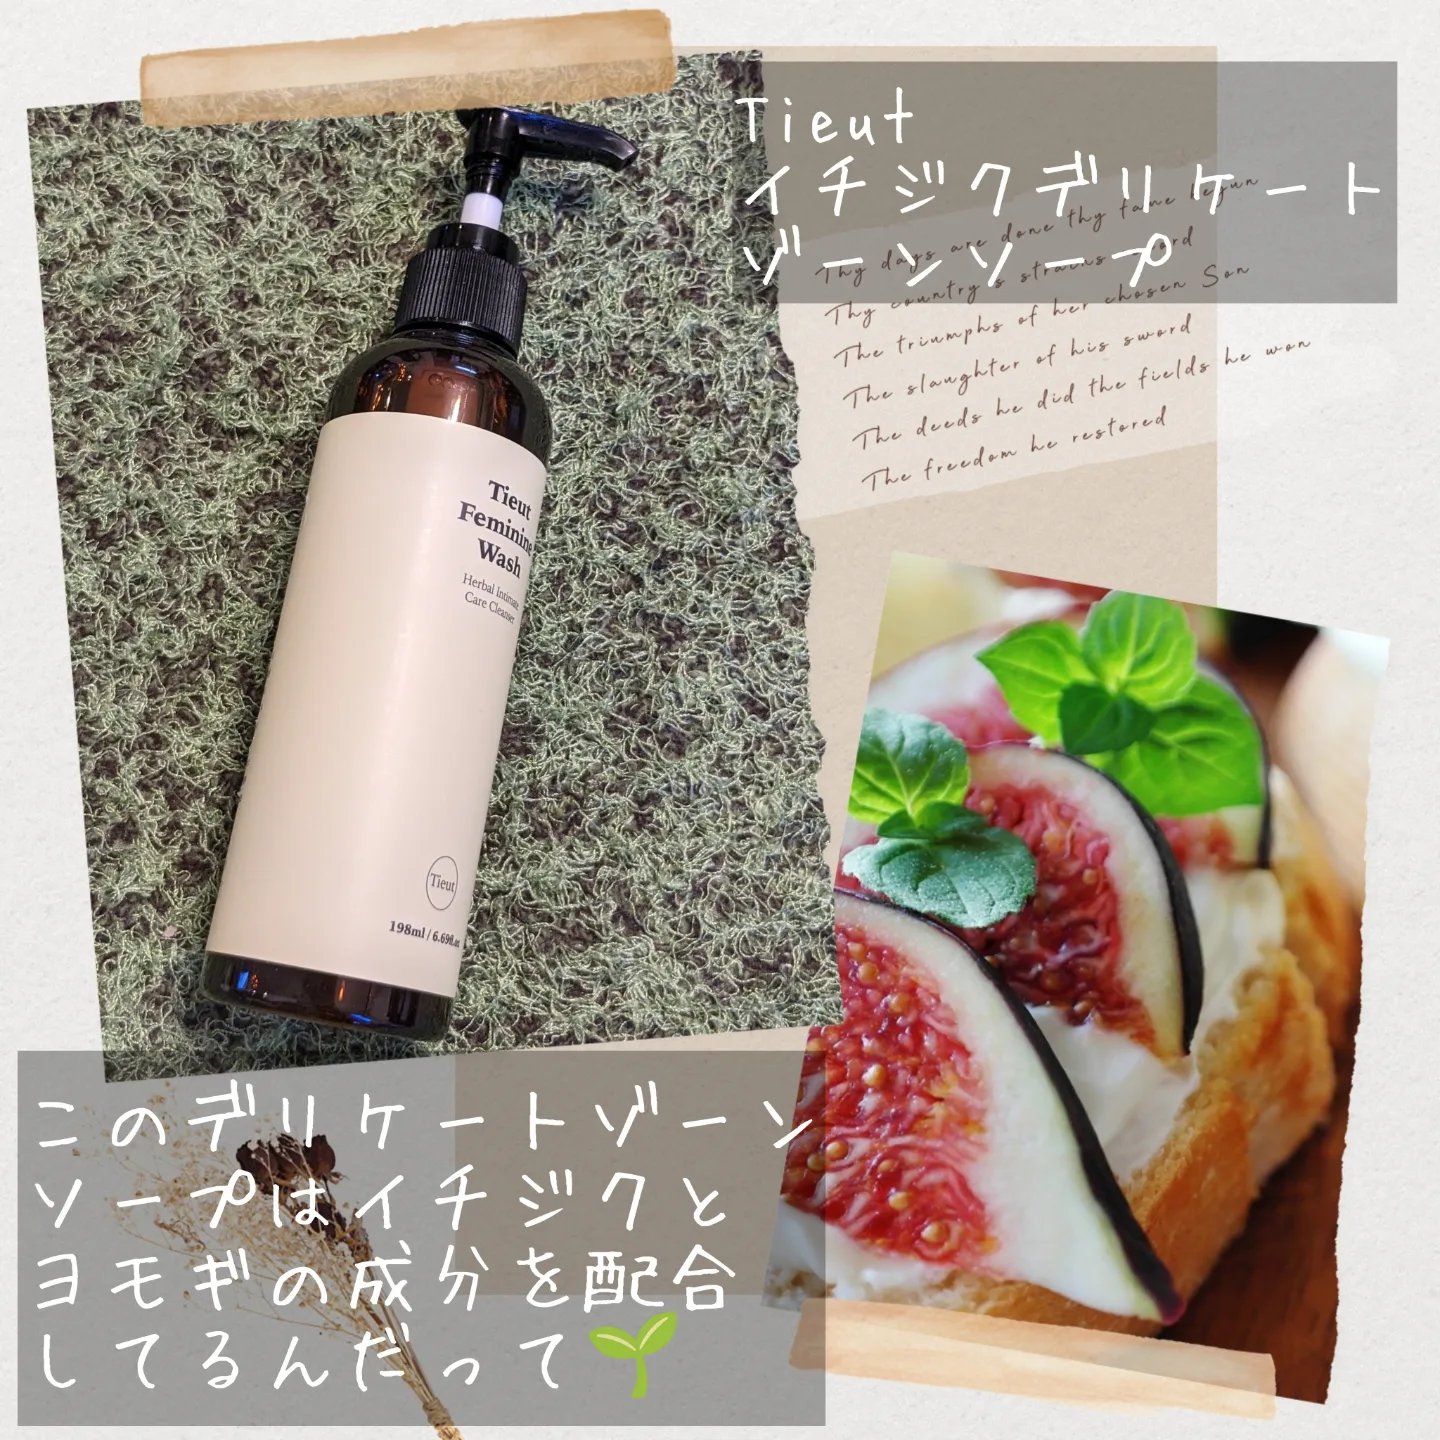 Tieut
イチジクデリケート
ゾーンソープ
Thy days are done thy fame begun
Thy country's strains record
The triumphs of her chosen Son
The slaughter of his sword
The deeds he did the fields he won
The freedom he restored
Tieut
Feminine
Wash
Herbal Intimate
Care Cleanser
Tieut
198ml / 6.69fl.oz
このデリケートゾーン
ソープはイチジクと
ヨモギの成分を配合
してるんだって🌱